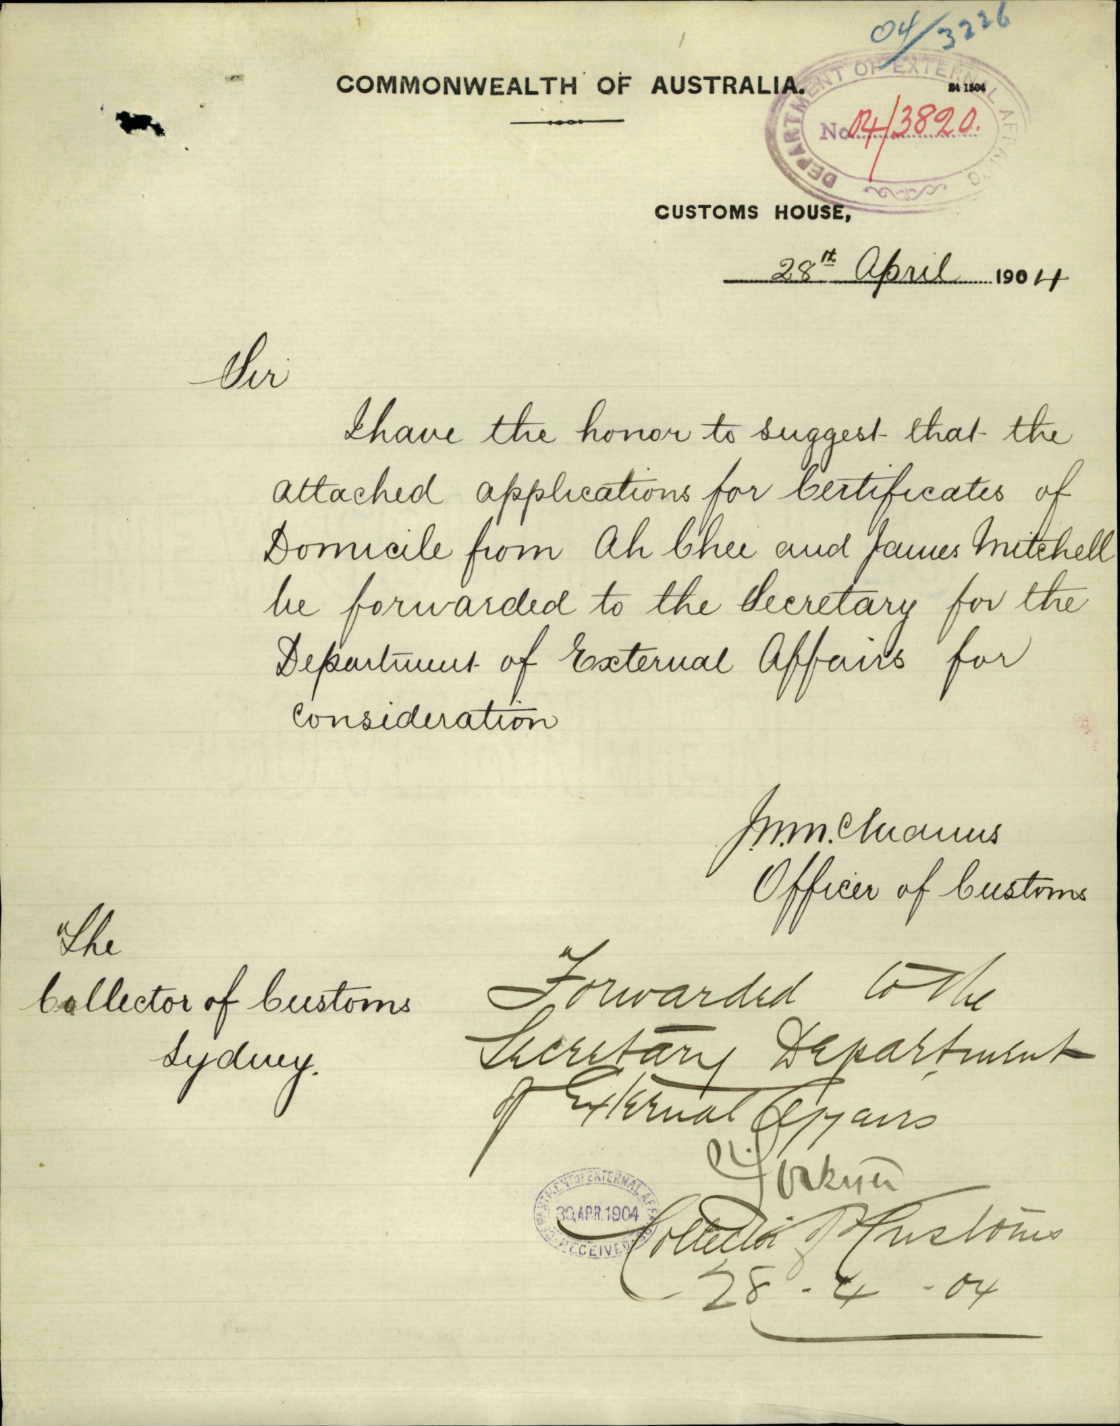 04/3226
COMMONWEALTH OF AUSTRALIA.
DEPARTMENT OF EXTERNAL AFFAIRS
No. 04/3820.
CUSTOMS HOUSE,
28th April 1904
Sir
I have the honor to suggest that the
attached applications for Certificates of
Domicile from Ah Chee and James Mitchell
be forwarded to the Secretary for the
Department of External Affairs for
consideration
Officer of Customs
The
Collector of Customs
Sydney.
Forwarded to the
Secretary Department
of External Affairs
DEPARTMENT OF EXTERNAL AFFAIRS
30 APR. 1904
RECEIVED
Collector of Customs
28-4-04